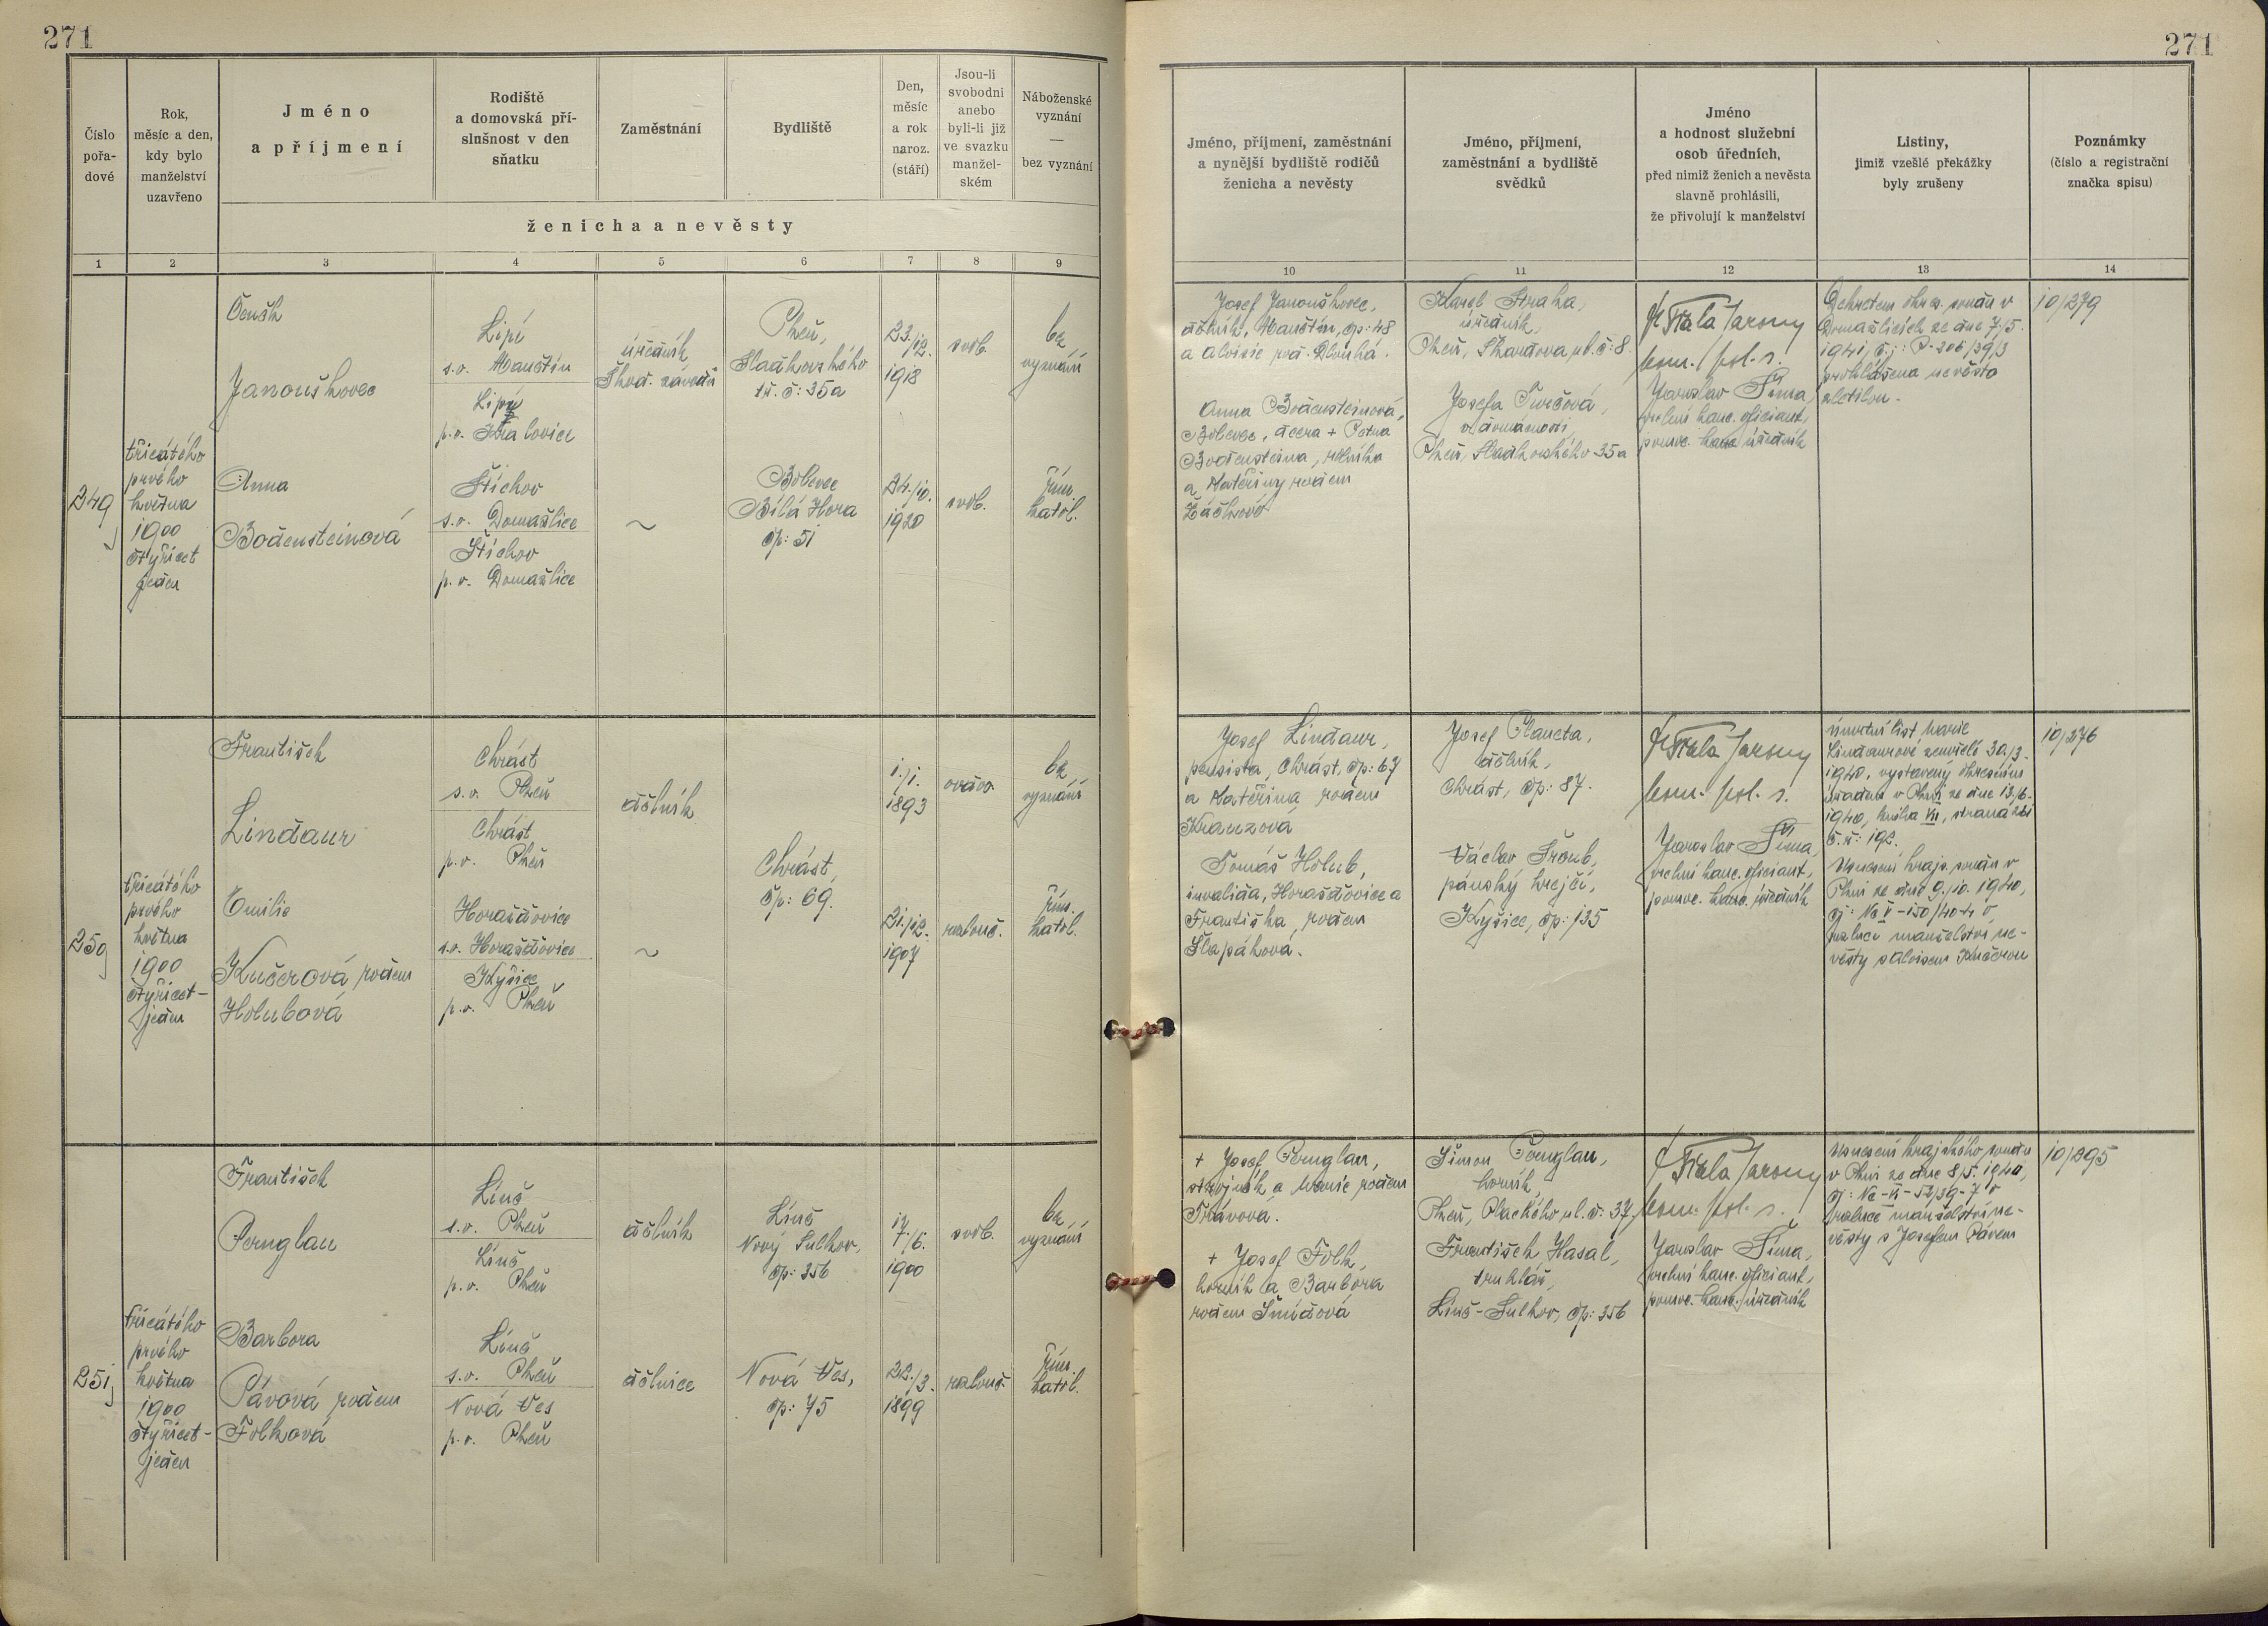 271
271
Číslo
pořa-
dové
Rok,
měsíc a den,
kdy bylo
manželství
uzavřeno
Jméno
a příjmení
Rodiště
a domovská pří-
slnšnost v den
sňatku
Zaměstnání
Bydliště
Den,
měsíc
a rok
naroz.
(stáří)
Jsou-li
svobodni
anebo
byli-li již
ve svazku
manžel-
ském
Náboženské
vyznání
—
bez vyznání
ženicha a nevěsty
Jméno, příjmení, zaměstnání
a nynější bydliště rodičů
ženicha a nevěsty
Jméno, příjmení,
zaměstnání a bydliště
svědků
Jméno
a hodnost služební
osob úředních,
před nimiž ženich a nevěsta
slavně prohlásili,
že přivolují k manželství
Listiny,
jimiž vzešlé překážky
byly zrušeny
Poznámky
(číslo a registrační
značka spisu)
1 2 3 4 5 6 7 8 9
10 11 12 13 14
249
třicátého
prvého
května
1900
čtyřicet
jeden
Čeněk
Janoušhovec
Lipí
s.o. Manětín
Lipí
p.o. Kralovice
úředník
Škod. závodů
Plzeň,
Sladkovského
tř. č: 35a
23./12.
1918
svob.
bez
vyznání
Anna
Bodensteinová
Štichov
s.o. Domažlice
Štichov
p.o. Domažlice
~
Bolevec
Bílá Hora
čp: 51
24./10.
1920
svob.
řím.
katol.
Josef Janoušhovec,
dělník, Manětín, čp: 48
a Aloisie roz. Dlouhá.
Anna Bodensteinová,
Bolevec, dcera + Petra
Bodensteina, rolníka
a Kateřiny rodem
Karel Straka,
úředník,
Plzeň, Škardova ul. č: 8
v domácnosti,
Plzeň, Sladkovského 35a
Fiala Jaromy
kom. pol. s.
Jaroslav Šíma,
vrchní kanc. oficiant,
pomoc. kanc. úředník
Dekretem okres. soudu v
Domažlicích ze dne 7./5.
1941, č.j.: P-206/39/3
prohlášena nevěsta
zletilou.
10/279
250
třicátého
prvého
května
1900
čtyřicet-
jeden
František
Lindaur
Chrást
s.o. Plzeň
Chrást
p.o. Plzeň
dělník
Chrást,
čp: 69.
1./1.
1893
ovdov.
bez
vyznání
Emilie
Kučerová rodem
Holubová
Horažďovice
s.o. Horažďovice
Kyšice
p.o. Plzeň
~
21./12.
1907
rozlouč.
řím.
katol.
Josef Lindaur,
pensista, Chrást, čp: 67
a Kateřina rodem
Kranzová
Tomáš Holub,
invalida, Horažďovice a
Františka, rodem
Šlapáková.
Josef Planeta,
dělník,
Chrást, čp: 87.
Václav Šroub,
pánský krejčí,
Kyšice, čp: 135
Fiala Jaromy
kom. pol. s.
Jaroslav Šíma,
vrchní kanc. oficiant,
pomoc. kanc. úředník
Úmrtní list Marie
Lindaurové zemřelé 30./3.
1940, vystavený okresním
úřadem v Plzni ze dne 13./6.
1940, kniha VII, strana 261
č. ř: 192.
Usnesení krajs. soudu v
Plzni ze dne 9./10. 1940,
rozluce manželství ne-
věsty s Aloisem Kučerou
10/276
251
třicátého
prvého
května
1900
čtyřicet-
jeden
František
Pernglau
Líně
s.o. Plzeň
Líně
p.o. Plzeň
dělník
Líně
Nový Sulkov,
čp: 356
17./6.
1900
svob.
bez
vyznání
Barbora
Pávová rodem
Folková
Líně
s.o. Plzeň
Nová Ves
p.o. Plzeň
dělnice
Nová Ves,
čp: 75
22./3.
1899
rozlouč.
řím.
katol.
+ Josef Pernglau,
strojník a Marie rodem
Trávova.
+ Josef Folk,
horník a Barbora
rodem Šmídová
Šimon Pernglau,
horník,
Plzeň, Plackého ul. č: 37,
František Hasal,
truhlář,
Líně-Sulkov, čp: 356
Fiala Jaromy
kom. pol. s.
Jaroslav Šíma,
vrchní kanc. oficiant,
pomoc. kanc. úředník
Usnesení krajského soudu
v Plzni ze dne 8/5. 1940,
rozluce manželství ne-
věsty s Josefem Pávem
10/295